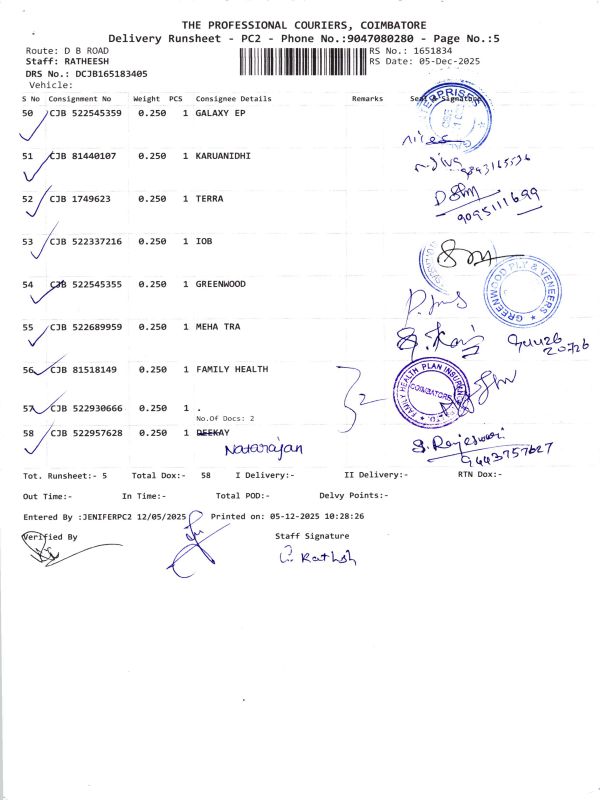 THE PROFESSIONAL COURIERS, COIMBATORE
Delivery Runsheet - PC2 - Phone No.:9047080280 - Page No.:5
Route: D B ROAD RS No.: 1651834
Staff: RATHEESH RS Date: 05-Dec-2025
DRS No.: DCJB165183405
Vehicle:
S No Consignment No Weight PCS Consignee Details Remarks Seal & Signature
50 CJB 522545359 0.250 1 GALAXY EP
51 CJB 81440107 0.250 1 KARUANIDHI
52 CJB 1749623 0.250 1 TERRA
9095111699
53 CJB 522337216 0.250 1 IOB
54 CJB 522545355 0.250 1 GREENWOOD
GREENWOOD PLY & VENEERS
55 CJB 522689959 0.250 1 MEHA TRA
56 CJB 81518149 0.250 1 FAMILY HEALTH
2
FAMILY HEALTH PLAN INSURENCE
COIMBATORE
57 CJB 522930666 0.250 1 .
No.Of Docs: 2
58 CJB 522957628 0.250 1 DEEKAY
Natarajan
S. Rajeswari
9443757627
Tot. Runsheet:- 5 Total Dox:- 58 I Delivery:- II Delivery:- RTN Dox:-
Out Time:- In Time:- Total POD:- Delvy Points:-
Entered By :JENIFERPC2 12/05/2025 Printed on: 05-12-2025 10:28:26
Verified By Staff Signature